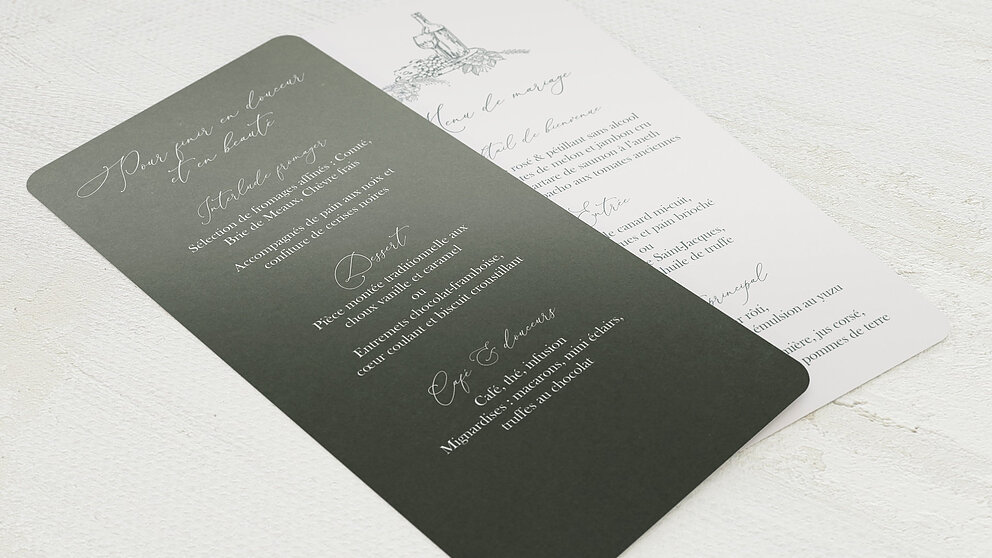 Pour finir en douceur
et en beauté
Interlude fromager
Sélection de fromages affinés : Comté,
Brie de Meaux, Chèvre frais
Accompagnés de pain aux noix et
confiture de cerises noires
Dessert
Pièce montée traditionnelle aux
choux vanille et caramel
ou
Entremets chocolat-framboise,
cœur coulant et biscuit croustillant
Café & douceurs
Café, thé, infusion
Mignardises : macarons, mini éclairs,
truffes au chocolat
Menu de mariage
de bienvenue
rosé & pétillant sans alcool
de melon et jambon cru
tartare de saumon à l'aneth
aux tomates anciennes
Entrée
de canard mi-cuit,
et pain brioché
ou
Saint-Jacques,
huile de truffe
principal
rôti,
émulsion au yuzu
jus corsé,
pommes de terre